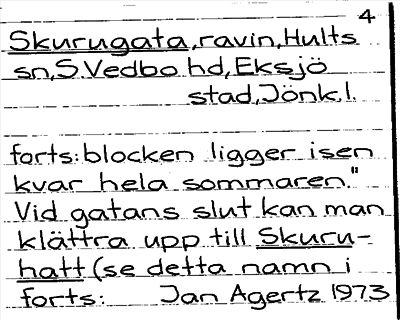 4
Skurugata, ravin, Hults
sn, S. Vedbo hd, Eksjö
stad, Jönk. l.
forts: blocken ligger isen
kvar hela sommaren."
Vid gatans slut kan man
klättra upp till Skuru-
hatt (se detta namn i
forts: Jan Agertz 1973